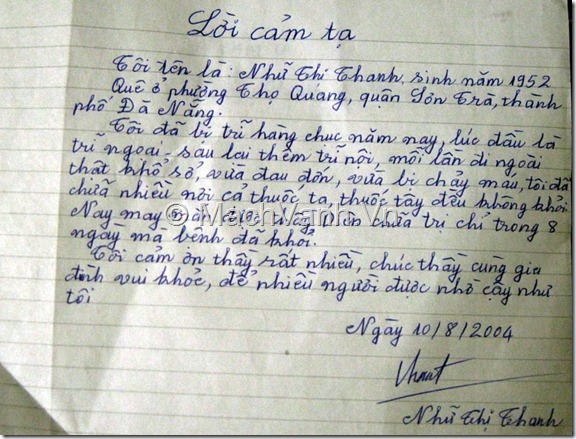 Lời cảm tạ
Tôi tên là: Nhữ Thị Thanh, sinh năm 1952
Quê ở phường Thọ Quang, quận Sơn Trà, thành
phố Đà Nẵng.
Tôi đã bị trĩ hàng chục năm nay, lúc đầu là
trĩ ngoại - sau lại thêm trĩ nội, mỗi lần đi ngoài
thật khổ sở, vừa đau đớn, vừa bị chảy máu, tôi đã
chữa nhiều nơi cả thuốc ta, thuốc tây đều không khỏi
Nay may chữa trị chỉ trong 8
ngày mà bệnh đã khỏi.
Tôi cảm ơn thầy rất nhiều, chúc thầy cùng gia
đình vui khỏe, để nhiều người được nhờ cậy như
tôi
Ngày 10/8/2004
Nhữ Thị Thanh
© MachVanh.Vn